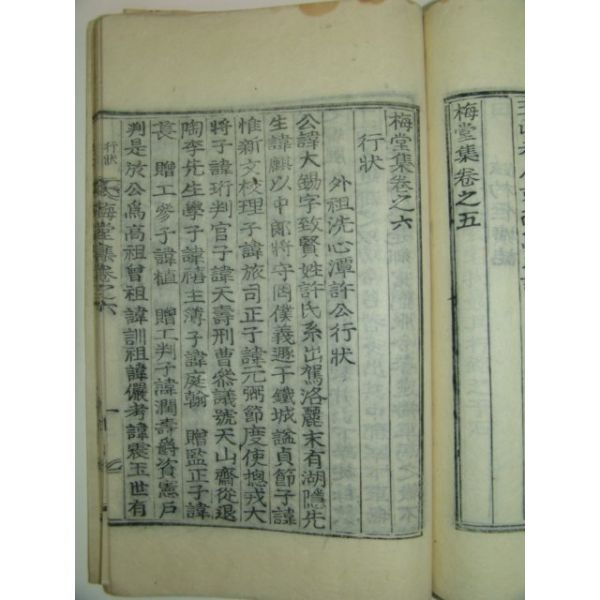 梅堂集卷之五
梅堂集卷之六
行狀
外祖洗心潭許公行狀
公諱大錫字致賢姓許氏系出駕洛麗末有湖隱先
生諱麒以中郞將守罔僕義遯于鐵城謚貞節子諱
惟新文校理子諱旅司正子諱元弼節度使摠戎大
將子諱珩判官子諱天壽刑曹參議號天山齋從退
陶李先生學子諱禧主簿子諱庭翰 贈監正子諱
長 贈工參子諱植 贈工判子諱潤壽爵資憲戶
判是於公爲高祖曾祖諱訓祖諱儼考諱震玉世有
行狀
梅堂集卷之六
一